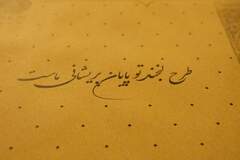 طرح لبخند تو پایان پریشانی ماست